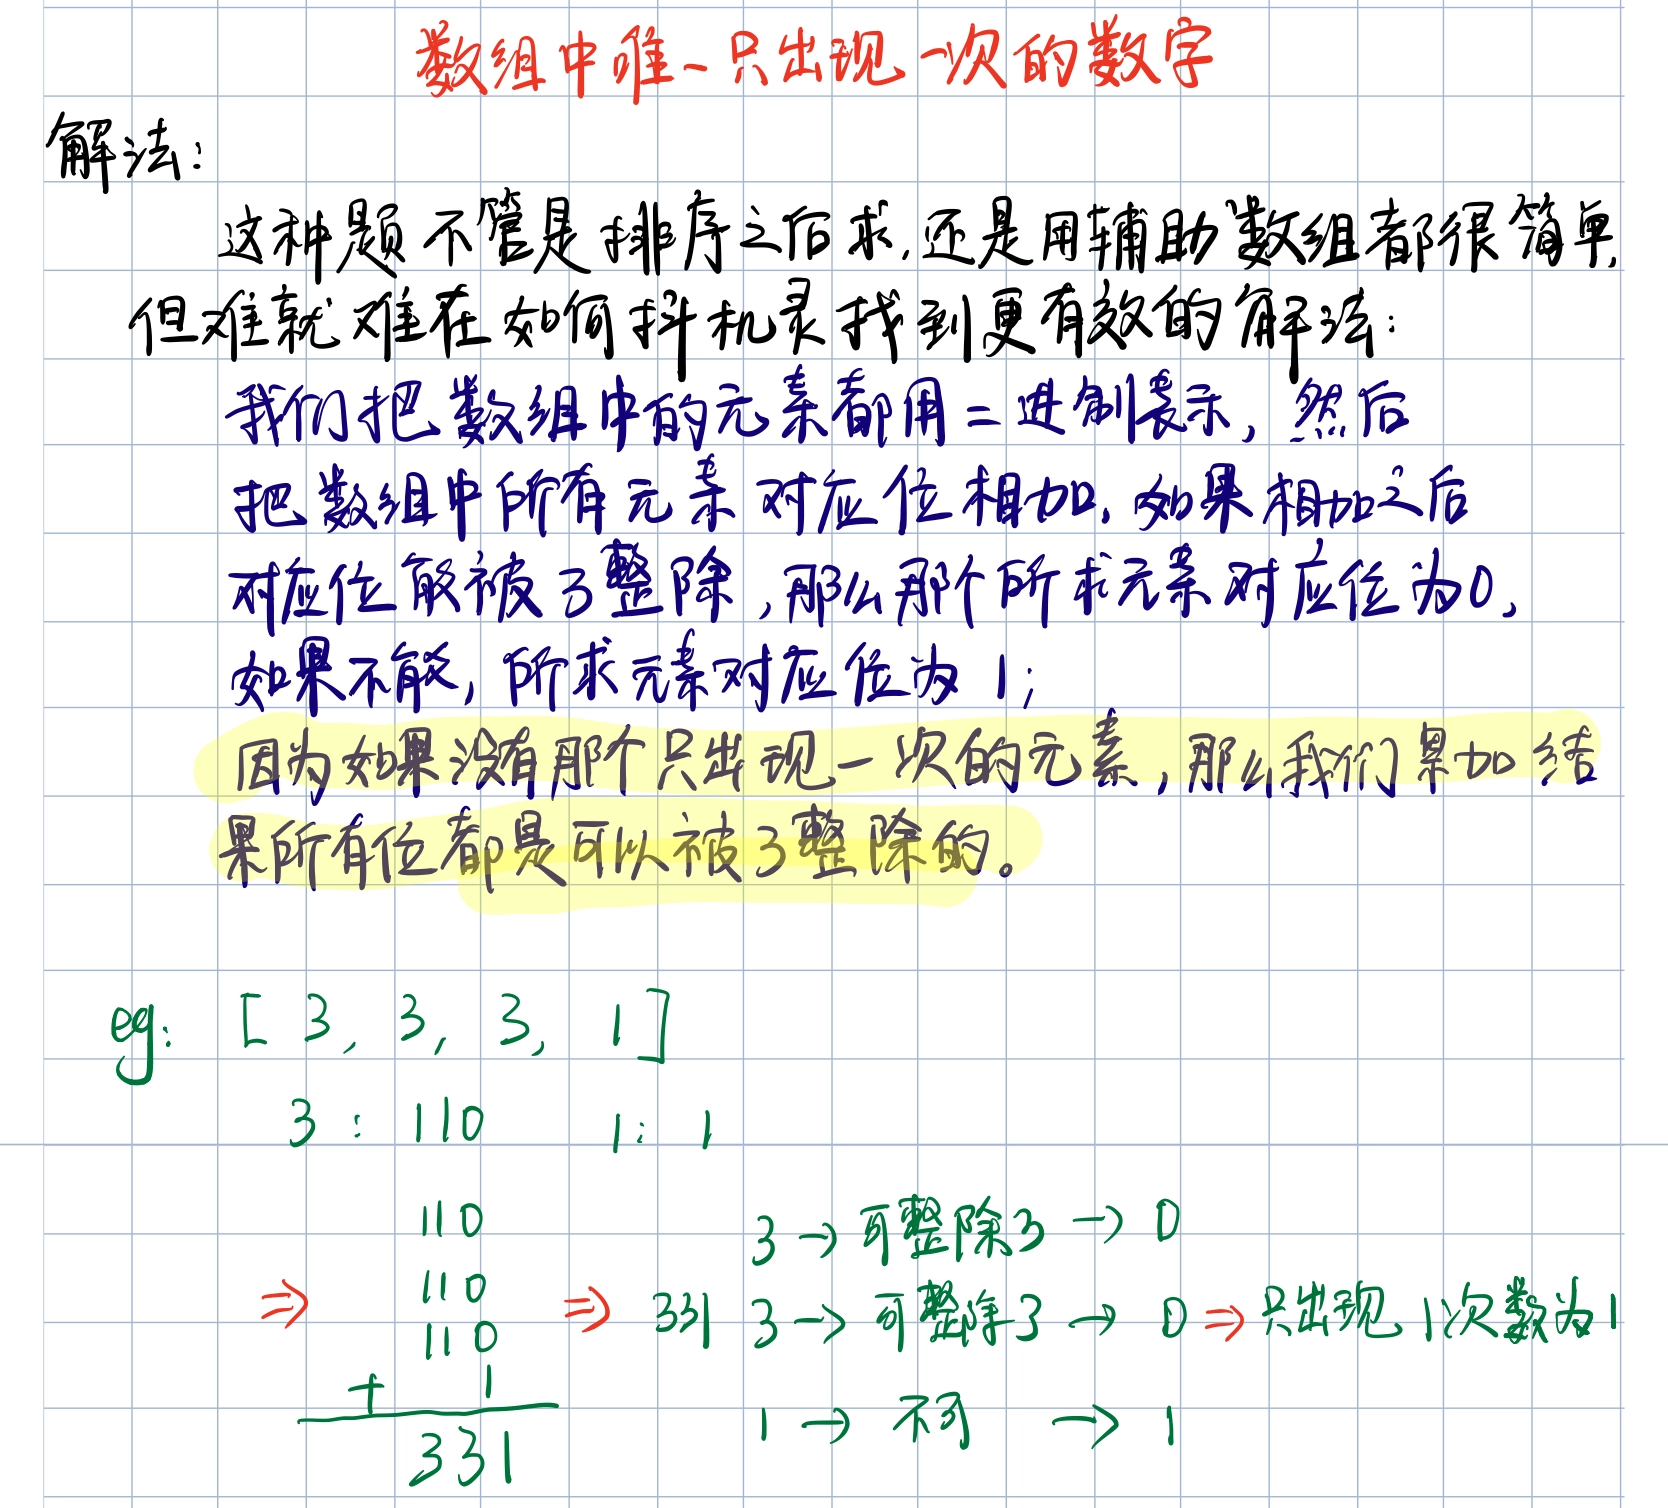 数组中唯一只出现一次的数字
解法:
这种题不管是排序之后求,还是用辅助数组都很简单,
但难就难在如何抖机灵找到更有效的解法:
我们把数组中的元素都用二进制表示,然后
把数组中所有元素对应位相加,如果相加之后
对应位能被3整除,那么那个所求元素对应位为0,
如果不能,所求元素对应位为1;
因为如果没有那个只出现一次的元素,那么我们累加结
果所有位都是可以被3整除的。
eg: [3, 3, 3, 1]
3: 110 1: 1
110
110
110
+ 1
331
⇒ ⇒ 331
3→可整除3→0
3→可整除3→0⇒只出现1次数为1
1→不可→1